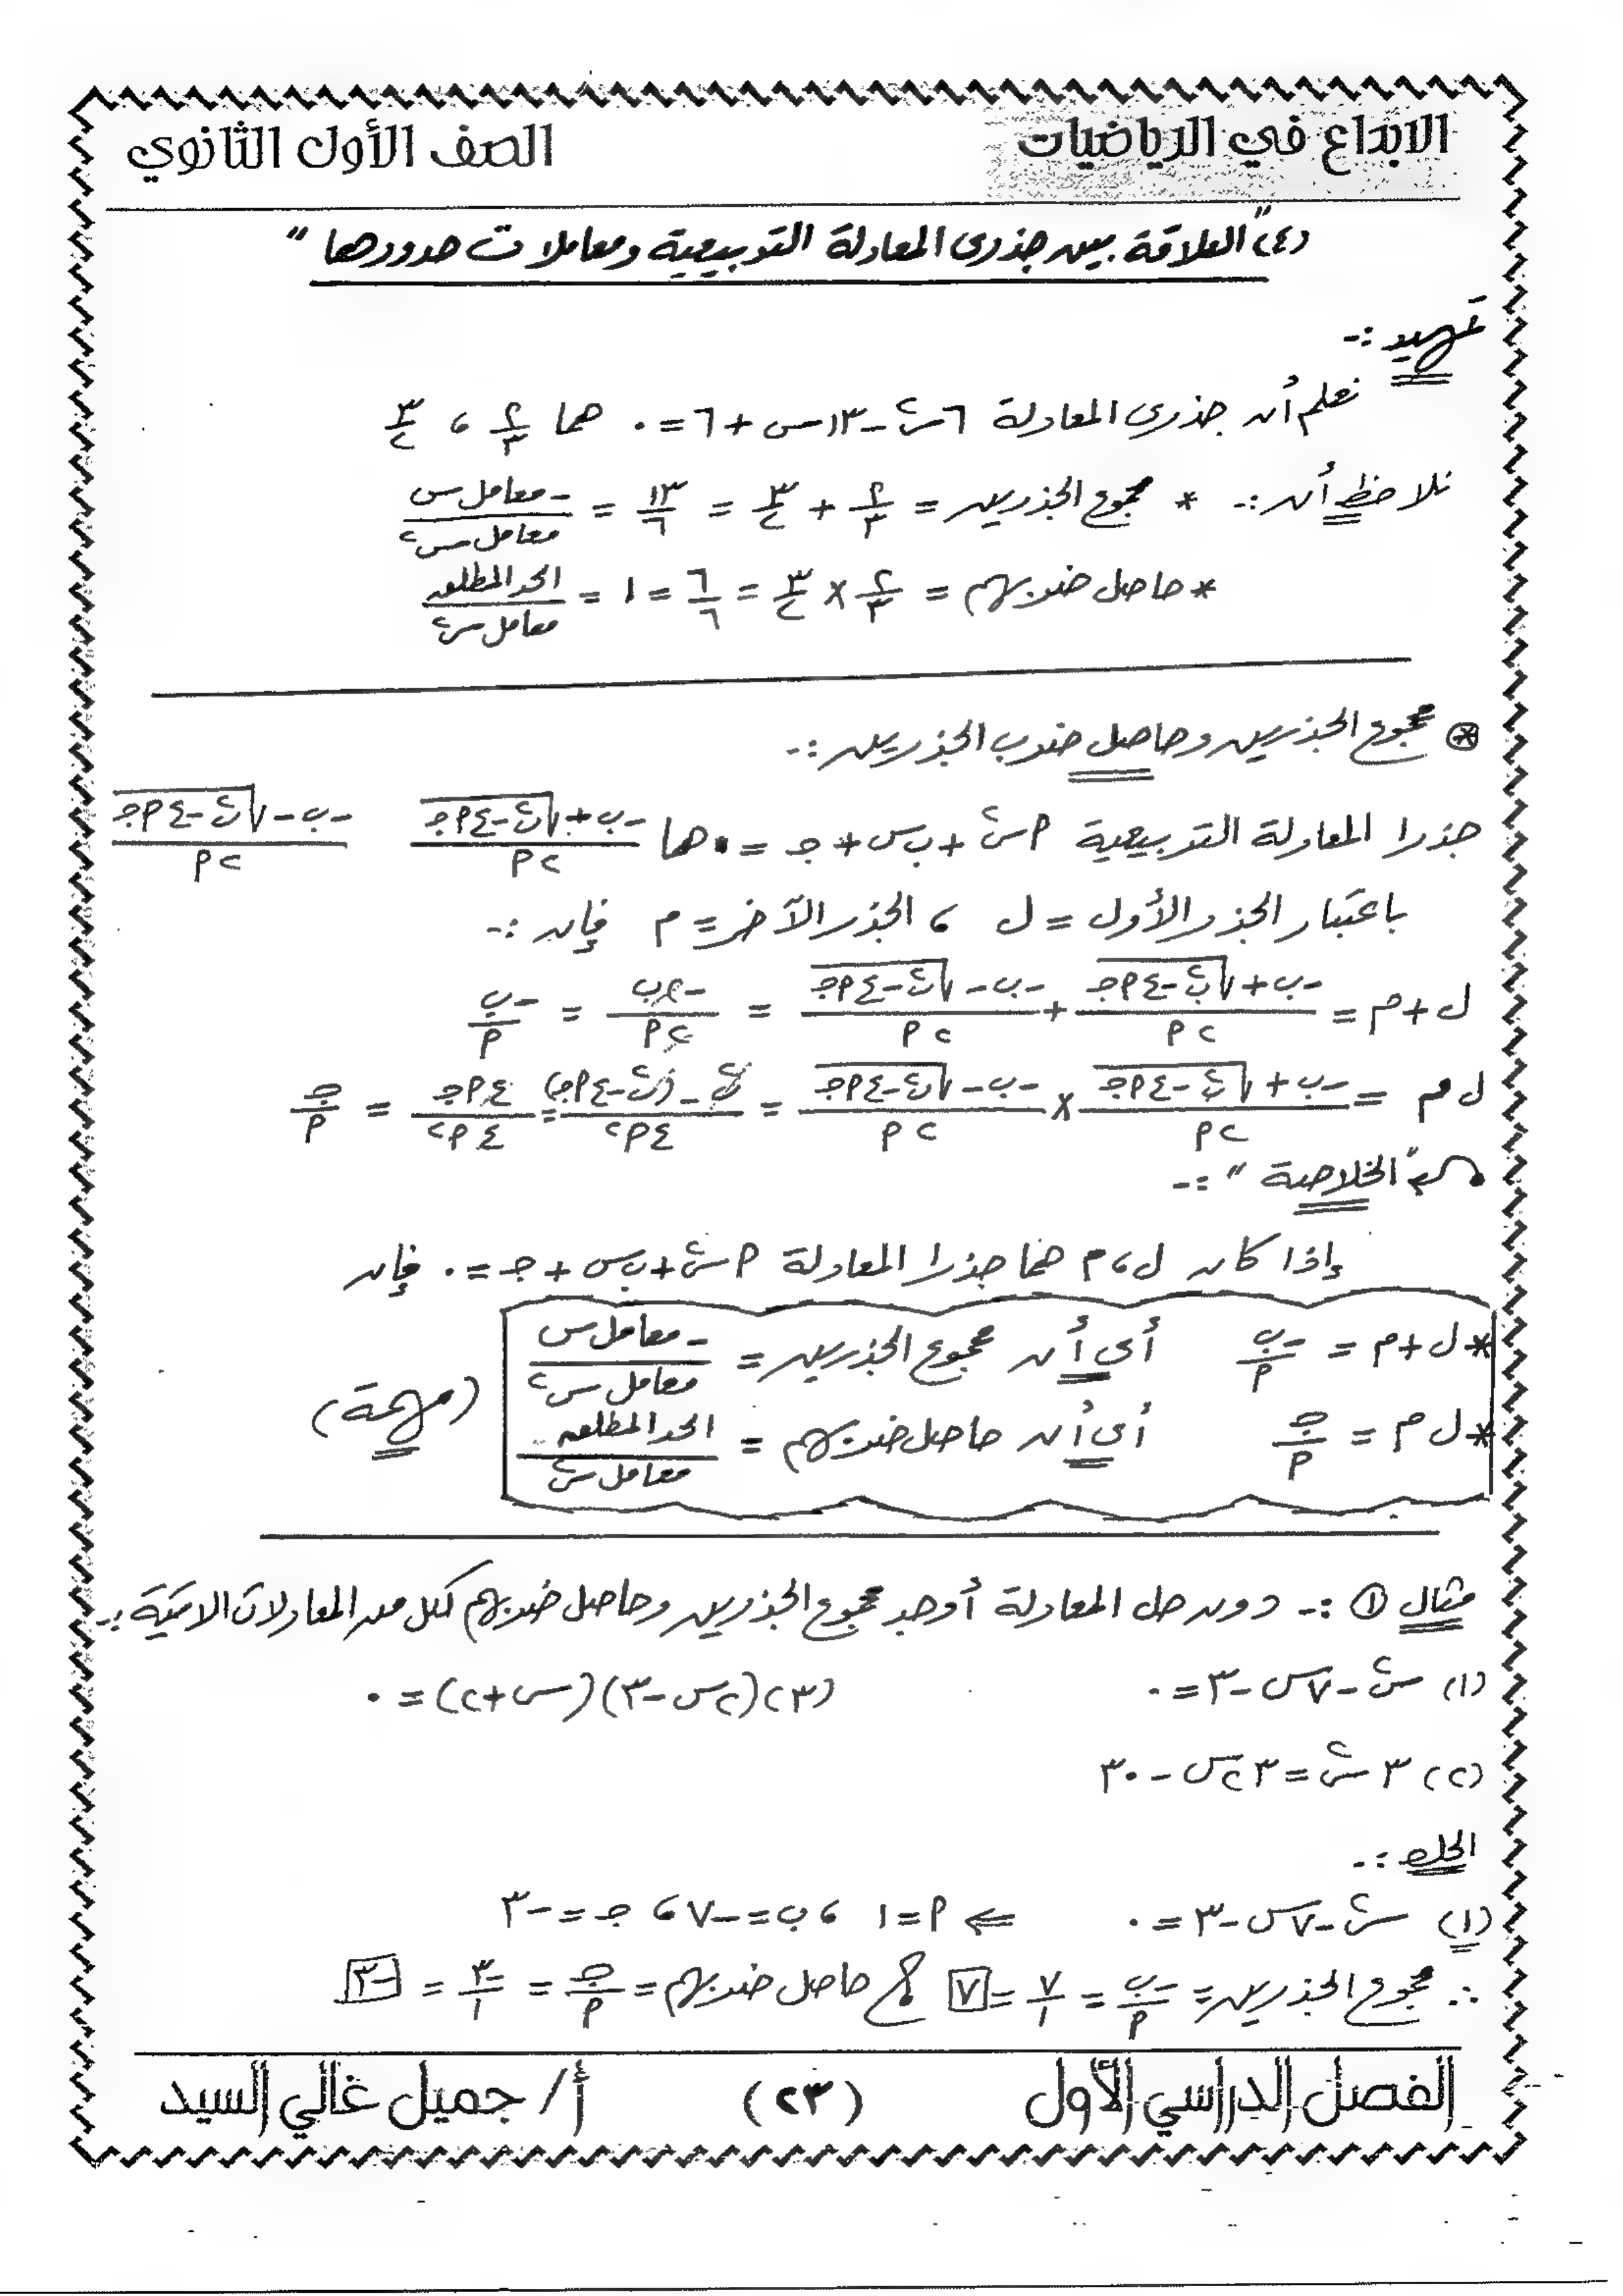 الابداع في الرياضيات
الصف الأول الثانوي
(٤) "العلاقة بين جذرى المعادلة التربيعية ومعاملات حدودها"
تمهيد :-
نعلم أن جذرى المعادلة ٦س٢ - ١٣س + ٦ = ٠ هما ٢/٣ ، ٣/٢
نلاحظ أن :- * مجموع الجذرين = ٢/٣ + ٣/٢ = ١٣/٦ = -معامل س / معامل س٢
* حاصل ضربهم = ٢/٣ × ٣/٢ = ٦/٦ = ١ = الحد المطلق / معامل س٢
⊛ مجموع الجذرين وحاصل ضرب الجذرين :-
جذرا المعادلة التربيعية ٩س٢ + ب س + جـ = ٠ هما (-ب + √(ب٢ - ٤٩جـ)) / ٢٩ (-ب - √(ب٢ - ٤٩جـ)) / ٢٩
باعتبار الجذر الأول = ل ، الجذر الآخر = م فإن :-
ل + م = (-ب + √(ب٢ - ٤٩جـ)) / ٢٩ + (-ب - √(ب٢ - ٤٩جـ)) / ٢٩ = -٢ب / ٢٩ = -ب / ٩
ل م = (-ب + √(ب٢ - ٤٩جـ)) / ٢٩ × (-ب - √(ب٢ - ٤٩جـ)) / ٢٩ = (ب٢ - (ب٢ - ٤٩جـ)) / ٤٩٢ = ٤٩جـ / ٤٩٢ = جـ / ٩
"الخلاصة" :-
إذا كان ل ، م هما جذرا المعادلة ٩س٢ + ب س + جـ = ٠ فإن
* ل + م = -ب / ٩ أى أن مجموع الجذرين = -معامل س / معامل س٢
(مهمة)
* ل م = جـ / ٩ أى أن حاصل ضربهم = الحد المطلق / معامل س٢
مثال ① :- دون حل المعادلة أوجد مجموع الجذرين وحاصل ضربهم لكل من المعادلات الآتية :-
(١) س٢ - ٧س - ٣ = ٠ (٣) (٢س - ٣)(س + ٢) = ٠
(٢) ٣س٢ = ٢٣س - ٣٠
الحل :-
(١) س٢ - ٧س - ٣ = ٠ ⇐ ٩ = ١ ، ب = -٧ ، جـ = -٣
∴ مجموع الجذرين = -ب / ٩ = ٧/١ = ٧ ، حاصل ضربهم = جـ / ٩ = -٣/١ = -٣
الفصل الدراسي الأول
(٢٣)
أ/ جميل غالي السيد